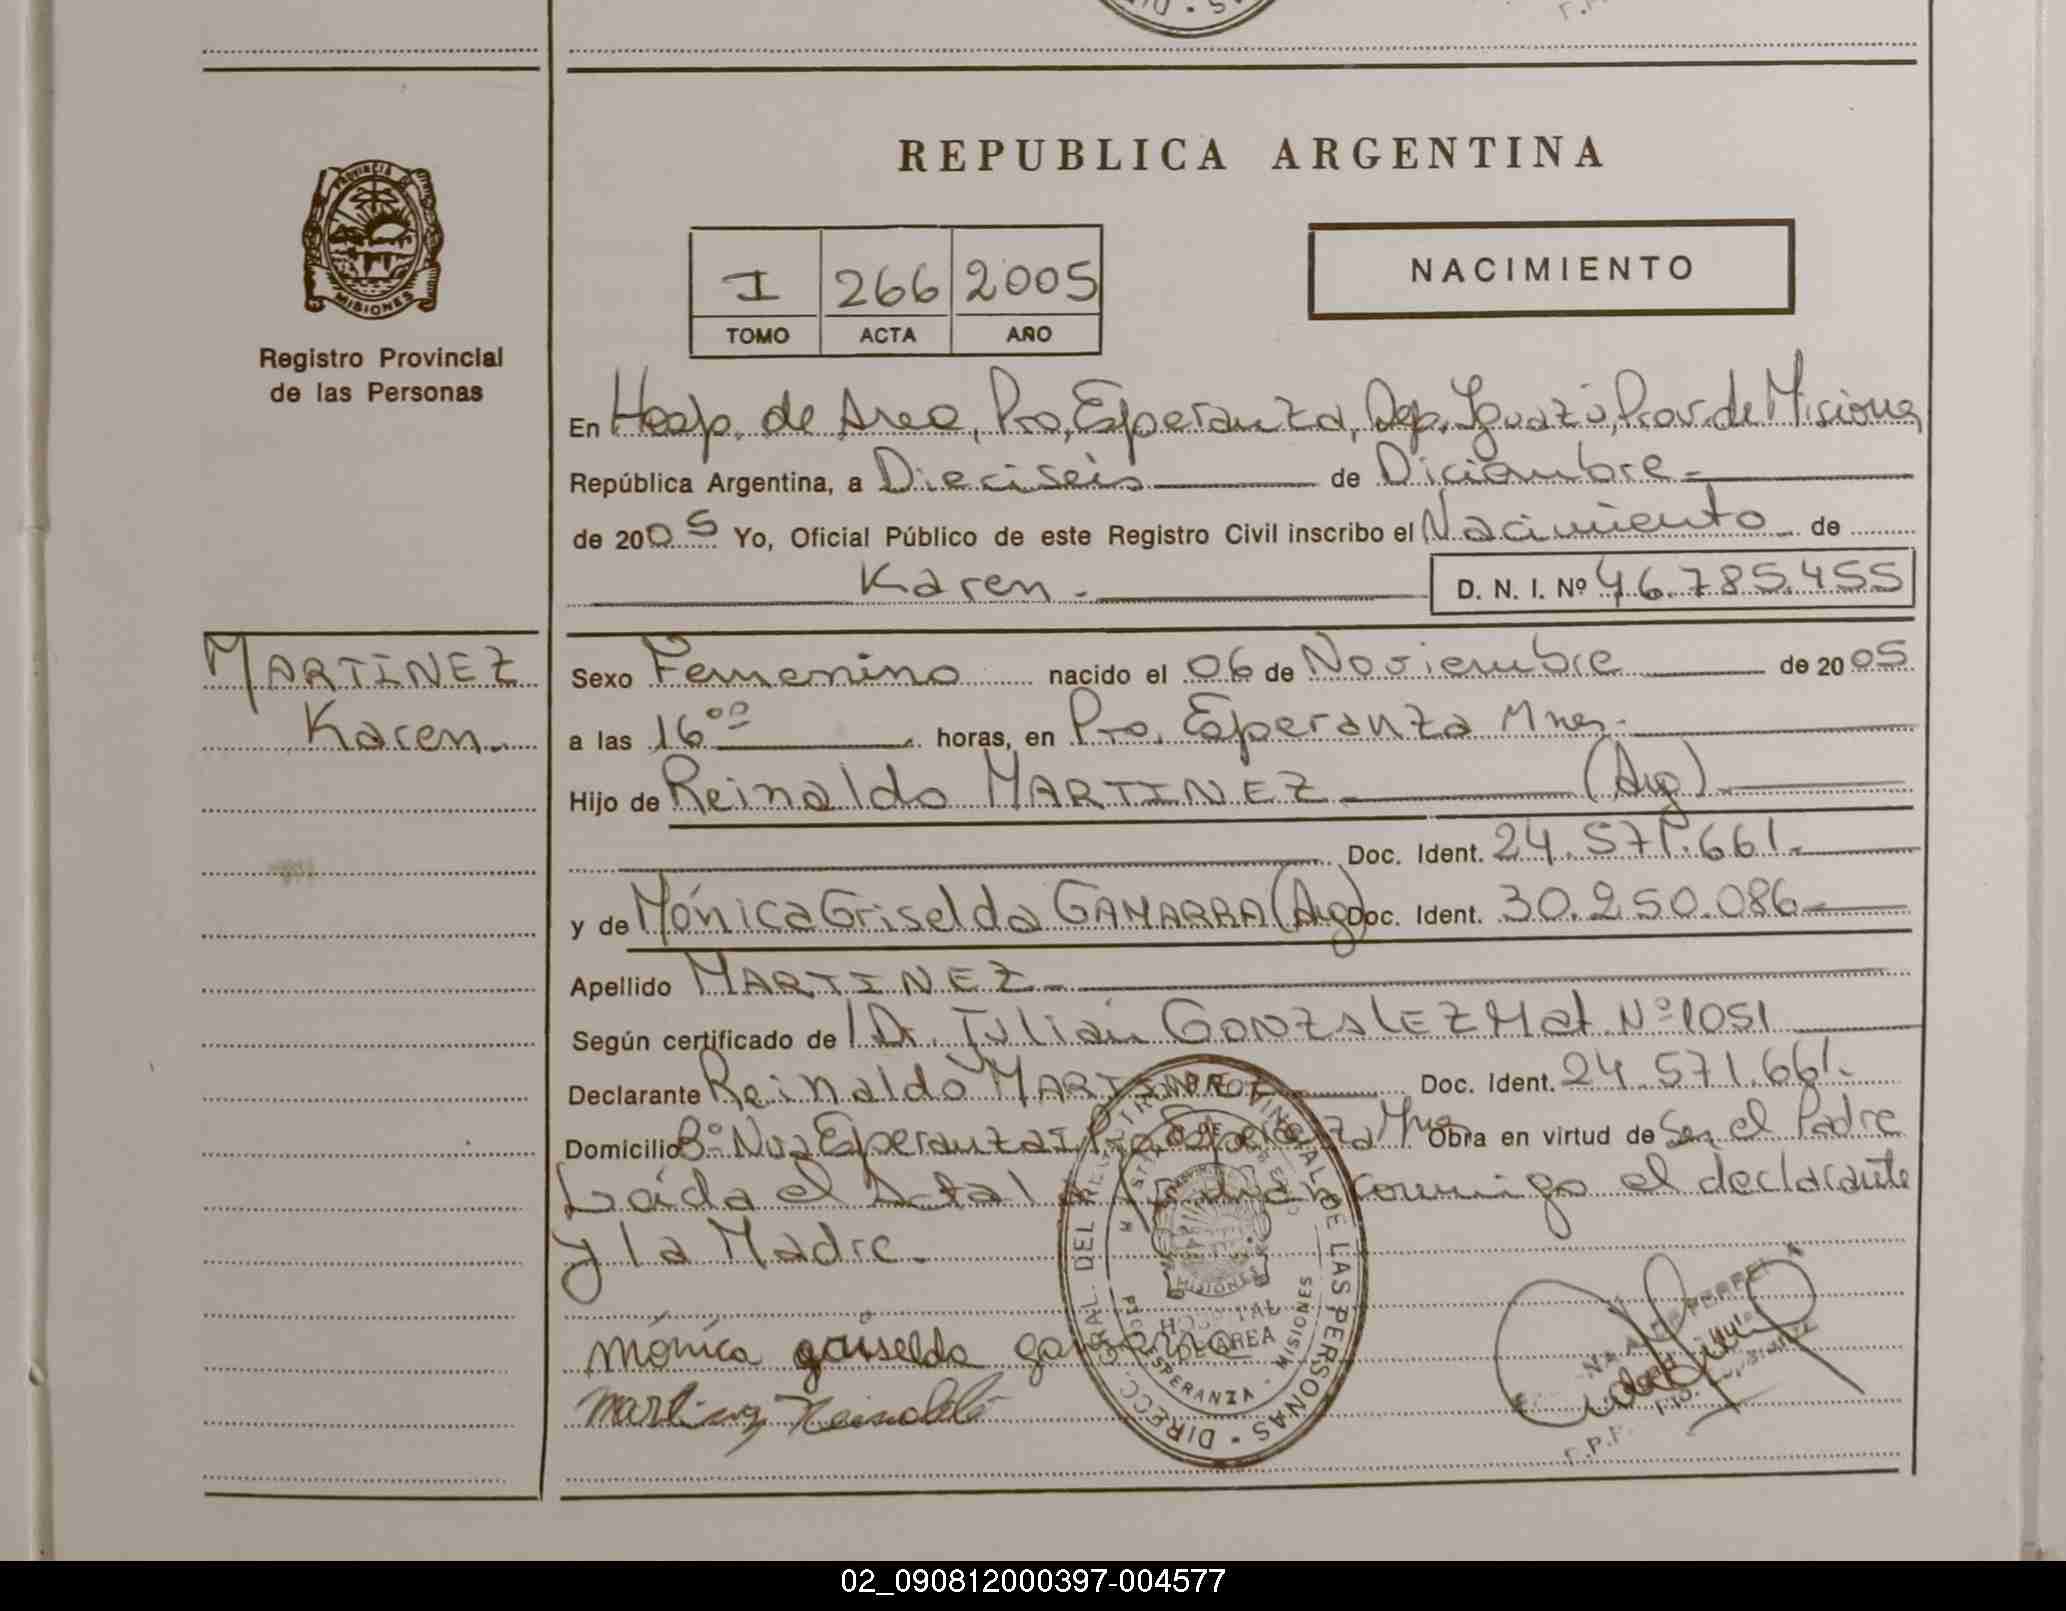 REPUBLICA ARGENTINA
PROVINCIA DE
MISIONES
Registro Provincial
de las Personas
I 266 2005
TOMO ACTA AÑO
NACIMIENTO
En Hosp. de Area, Pto, Esperanza, Dep. Iguazú, Prov. de Misiones
República Argentina, a Dieciseis de Diciembre.-
de 2005 Yo, Oficial Público de este Registro Civil inscribo el Nacimiento de
Karen.- D. N. I. Nº 46.785.455
MARTINEZ
Karen.-
Sexo Femenino nacido el 06 de Noviembre de 2005
a las 16 oo horas, en Pto. Esperanza Mnes.-
Hijo de Reinaldo MARTINEZ (Arg)
Doc. Ident. 24.571.661.-
y de Mónica Griselda GAMARRA (Arg) Doc. Ident. 30.250.086-
Apellido MARTINEZ-
Según certificado de Dr. Julian GONZALEZ Mat Nº 1051
Declarante Reinaldo MARTINEZ Doc. Ident. 24.571.661.-
Domicilio Bº Nva Esperanza Pto Esperanza Mnes Obra en virtud de Ser el Padre
Leída el Acta conmigo el declarante
y la Madre.-
mónica griselda gamarra
Martinez Reinaldo
DIRECC. GRAL. DEL REG. PROVINCIAL DE LAS PERSONAS
MISIONES
HOSPITAL
AREA
ESPERANZA - MISIONES
02_090812000397-004577